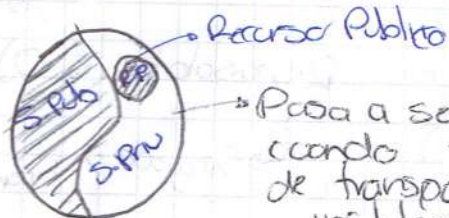 Recurso Público
RP
S.Pub
S.Priv
Pasa a se
cuando
de transpa